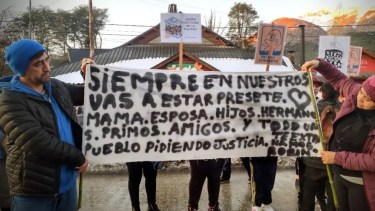 SIEMPRE EN NUESTROS
VAS A ESTAR PRESETE.
MAMA. ESPOSA. HIJOS. HERMANO
S. PRIMOS. AMIGOS. Y TODO UN
PUEBLO PIDIENDO JUSTICIA.